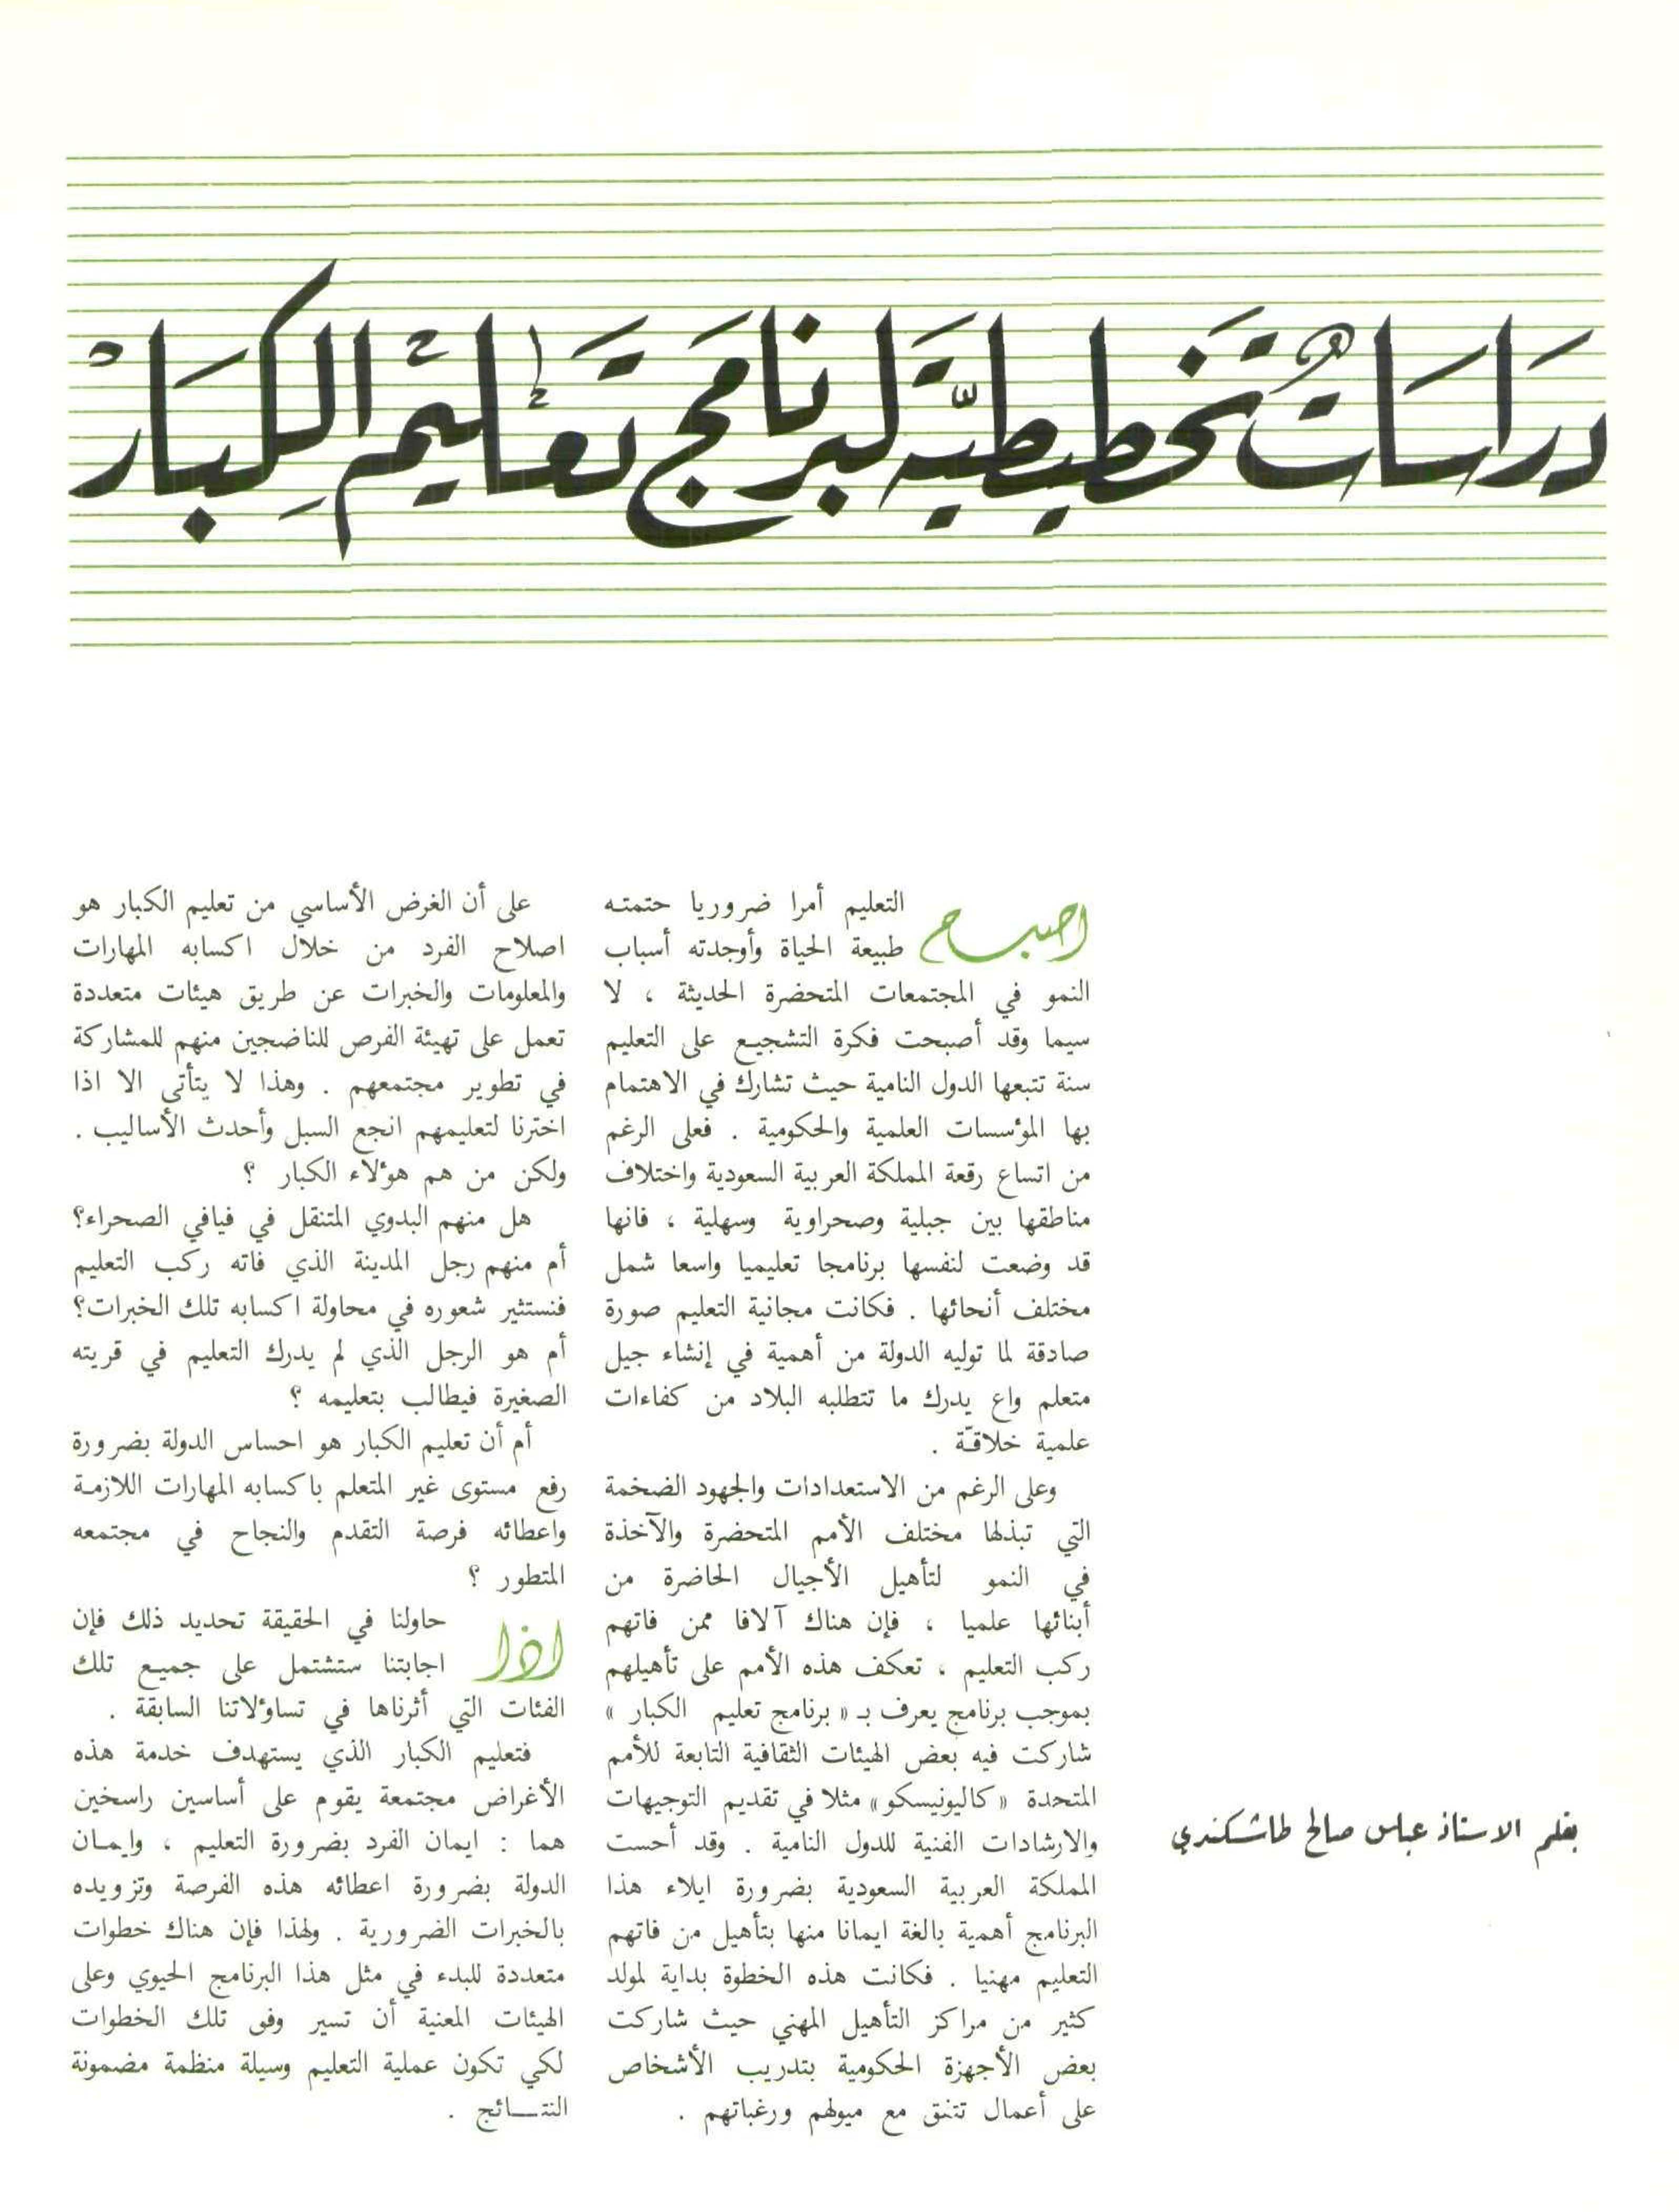 دراسات تخطيطية لبرنامج تعليم الكبار
بقلم الاستاذ عباس صالح طاشكندي
اصبح التعليم أمرا ضروريا حتمته
طبيعة الحياة وأوجدته أسباب
النمو في المجتمعات المتحضرة الحديثة ، لا
سيما وقد أصبحت فكرة التشجيع على التعليم
سنة تتبعها الدول النامية حيث تشارك في الاهتمام
بها المؤسسات العلمية والحكومية . فعلى الرغم
من اتساع رقعة المملكة العربية السعودية واختلاف
مناطقها بين جبلية وصحراوية وسهلية ، فانها
قد وضعت لنفسها برنامجا تعليميا واسعا شمل
مختلف أنحائها . فكانت مجانية التعليم صورة
صادقة لما توليه الدولة من أهمية في إنشاء جيل
متعلم واع يدرك ما تتطلبه البلاد من كفاءات
علمية خلاقّة .
وعلى الرغم من الاستعدادات والجهود الضخمة
التي تبذلها مختلف الأمم المتحضرة والآخذة
في النمو لتأهيل الأجيال الحاضرة من
أبنائها علميا ، فإن هناك آلافا ممن فاتهم
ركب التعليم ، تعكف هذه الأمم على تأهيلهم
بموجب برنامج يعرف بـ « برنامج تعليم الكبار »
شاركت فيه بعض الهيئات الثقافية التابعة للأمم
المتحدة «كاليونيسكو» مثلا في تقديم التوجيهات
والارشادات الفنية للدول النامية . وقد أحست
المملكة العربية السعودية بضرورة ايلاء هذا
البرنامج أهمية بالغة ايمانا منها بتأهيل من فاتهم
التعليم مهنيا . فكانت هذه الخطوة بداية لمولد
كثير من مراكز التأهيل المهني حيث شاركت
بعض الأجهزة الحكومية بتدريب الأشخاص
على أعمال تتفق مع ميولهم ورغباتهم .
على أن الغرض الأساسي من تعليم الكبار هو
اصلاح الفرد من خلال اكسابه المهارات
والمعلومات والخبرات عن طريق هيئات متعددة
تعمل على تهيئة الفرص للناضجين منهم للمشاركة
في تطوير مجتمعهم . وهذا لا يتأتى الا اذا
اخترنا لتعليمهم انجع السبل وأحدث الأساليب .
ولكن من هم هؤلاء الكبار ؟
هل منهم البدوي المتنقل في فيافي الصحراء؟
أم منهم رجل المدينة الذي فاته ركب التعليم
فنستثير شعوره في محاولة اكسابه تلك الخبرات؟
أم هو الرجل الذي لم يدرك التعليم في قريته
الصغيرة فيطالب بتعليمه ؟
أم أن تعليم الكبار هو احساس الدولة بضرورة
رفع مستوى غير المتعلم باكسابه المهارات اللازمة
واعطائه فرصة التقدم والنجاح في مجتمعه
المتطور ؟
اذا حاولنا في الحقيقة تحديد ذلك فإن
اجابتنا ستشتمل على جميع تلك
الفئات التي أثرناها في تساؤلاتنا السابقة .
فتعليم الكبار الذي يستهدف خدمة هذه
الأغراض مجتمعة يقوم على أساسين راسخين
هما : ايمان الفرد بضرورة التعليم ، وايمان
الدولة بضرورة اعطائه هذه الفرصة وتزويده
بالخبرات الضرورية . ولهذا فإن هناك خطوات
متعددة للبدء في مثل هذا البرنامج الحيوي وعلى
الهيئات المعنية أن تسير وفق تلك الخطوات
لكي تكون عملية التعليم وسيلة منظمة مضمونة
النتـــائج .